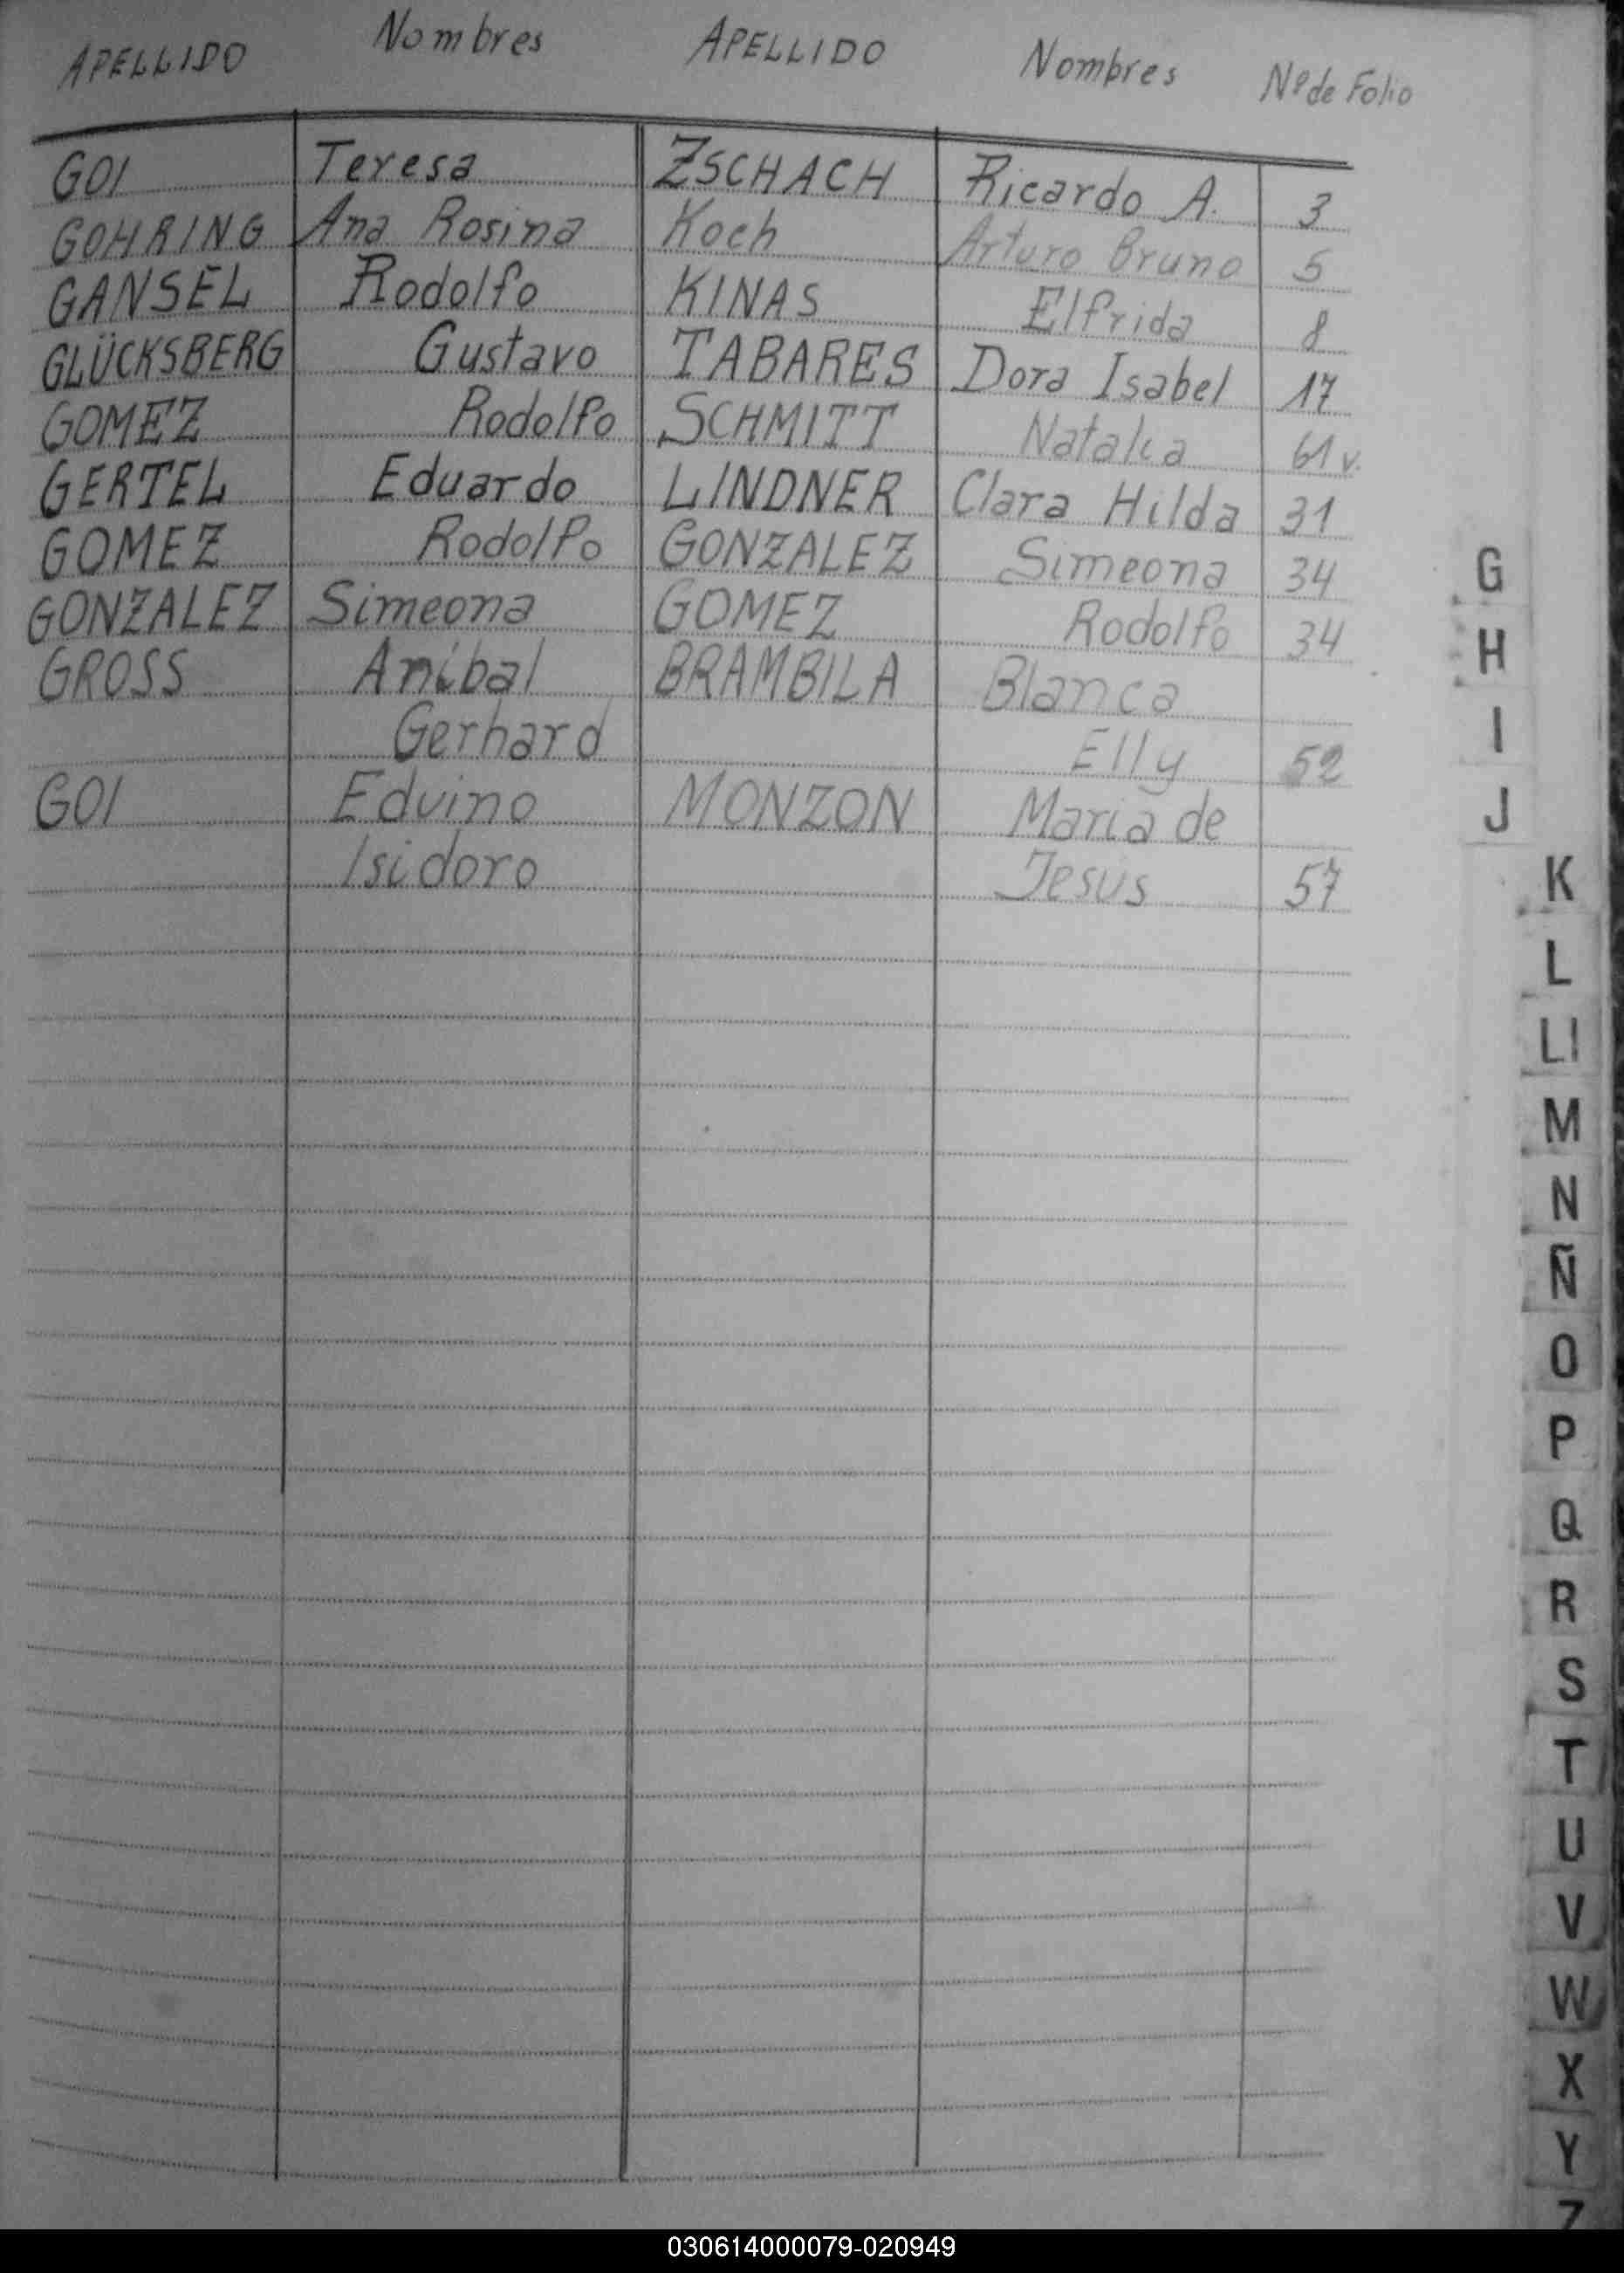 APELLIDO Nombres APELLIDO Nombres Nº de Folio
GOI Teresa ZSCHACH Ricardo A. 3
GOHRING Ana Rosina Koch Arturo Bruno 5
GANSEL Rodolfo KINAS Elfrida 8
GLÜCKSBERG Gustavo TABARES Dora Isabel 17
GOMEZ Rodolfo SCHMITT Natalia 61 v.
GERTEL Eduardo LINDNER Clara Hilda 31
GOMEZ Rodolfo GONZALEZ Simeona 34
GONZALEZ Simeona GOMEZ Rodolfo 34
GROSS Anibal BRAMBILA Blanca
Gerhard Elly 52
GOI Eduino MONZON Maria de
Isidoro Jesus 57
G
H
I
J
K
L
Ll
M
N
Ñ
O
P
Q
R
S
T
U
V
W
X
Y
Z
030614000079-020949